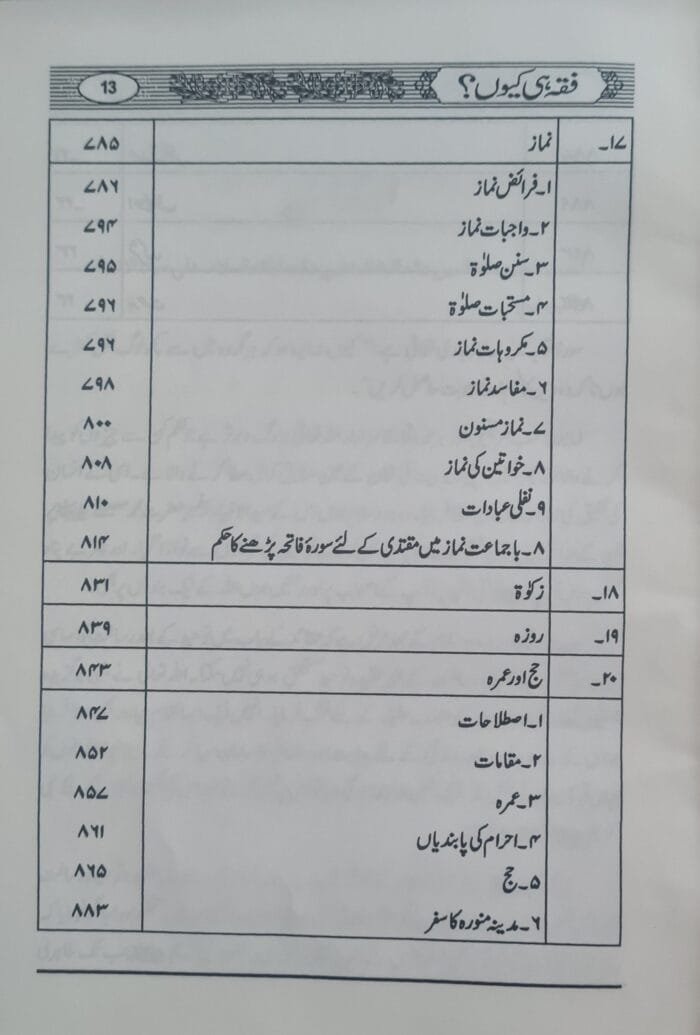 فقہ ہی کیوں؟ 13
۱۷۔ نماز ۷۸۵
۱۔ فرائض نماز ۷۸۶
۲۔ واجبات نماز ۷۹۴
۳۔ سنن صلوٰۃ ۷۹۵
۴۔ مستحبات صلوٰۃ ۷۹۶
۵۔ مکروہات نماز ۷۹۶
۶۔ مفاسد نماز ۷۹۸
۷۔ نماز مسنون ۸۰۰
۸۔ خواتین کی نماز ۸۰۸
۹۔ نفلی عبادات ۸۱۰
۸۔ باجماعت نماز میں مقتدی کے لئے سورۂ فاتحہ پڑھنے کا حکم ۸۱۴
۱۸۔ زکوٰۃ ۸۳۱
۱۹۔ روزہ ۸۳۹
۲۰۔ حج اور عمرہ ۸۴۳
۱۔ اصطلاحات ۸۴۷
۲۔ مقامات ۸۵۲
۳۔ عمرہ ۸۵۷
۴۔ احرام کی پابندیاں ۸۶۱
۵۔ حج ۸۶۵
۶۔ مدینہ منورہ کا سفر ۸۸۳